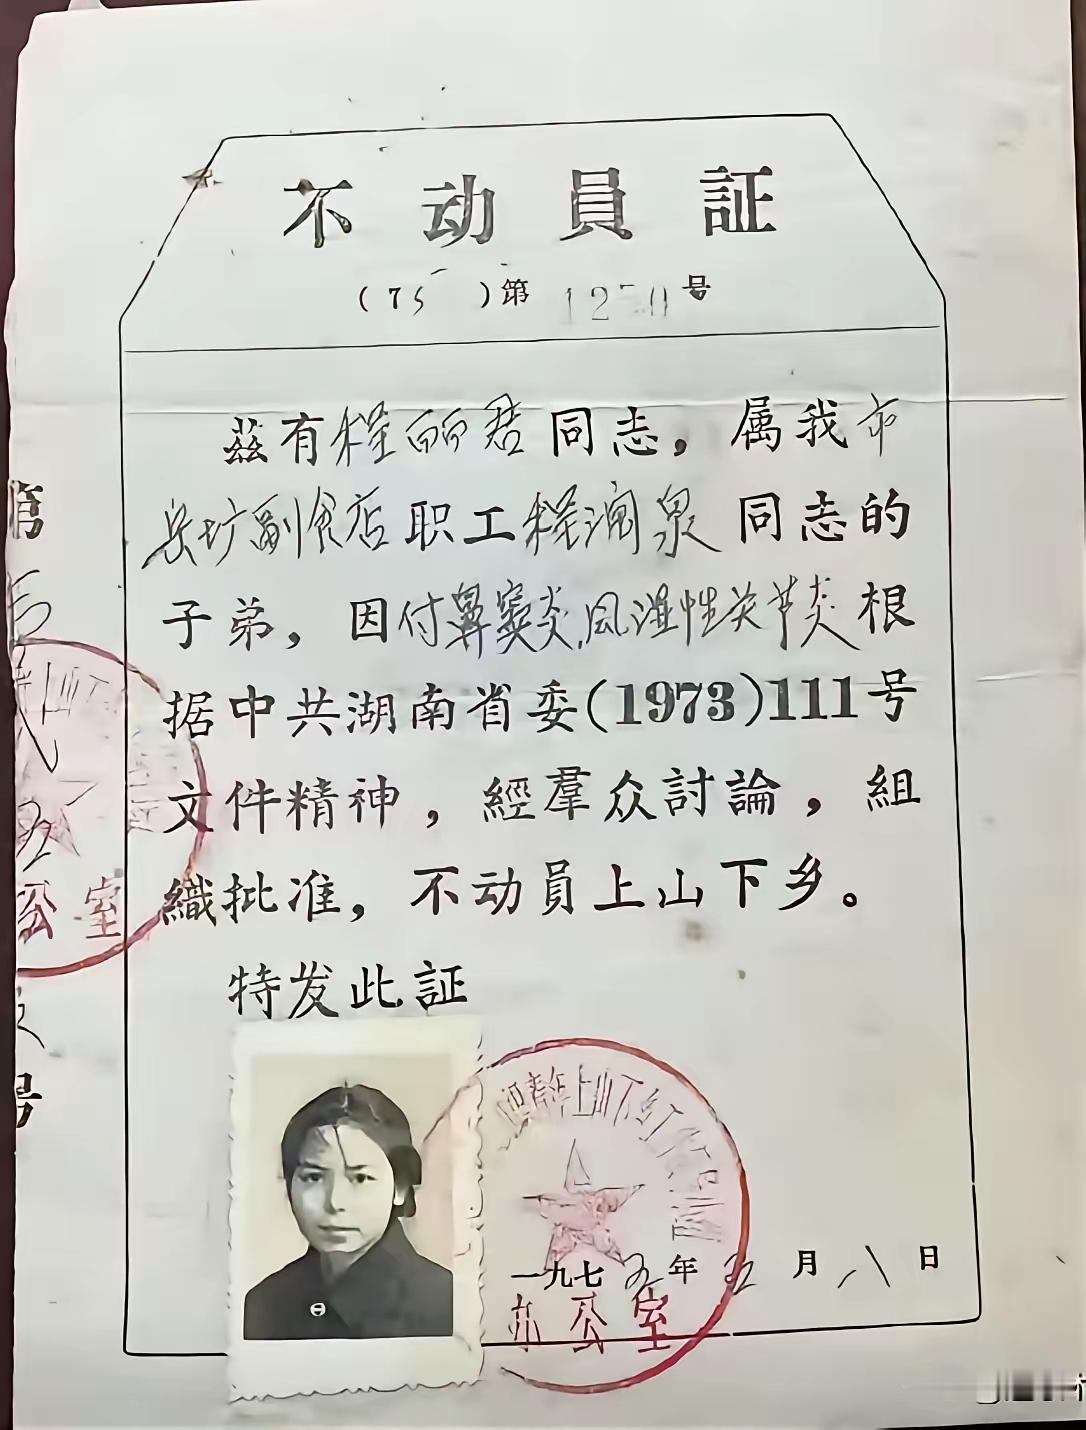 不动員証
(75)第1250号
茲有程丽君同志，属我市
坊副食店职工程润泉同志的
子弟，因付鼻窦炎.风湿性关节炎根
据中共湖南省委(1973)111号
文件精神，經羣众討論，組
織批准，不动員上山下乡。
特发此証
青年上山下乡
一九七五年五月八日
办公室
公室
号